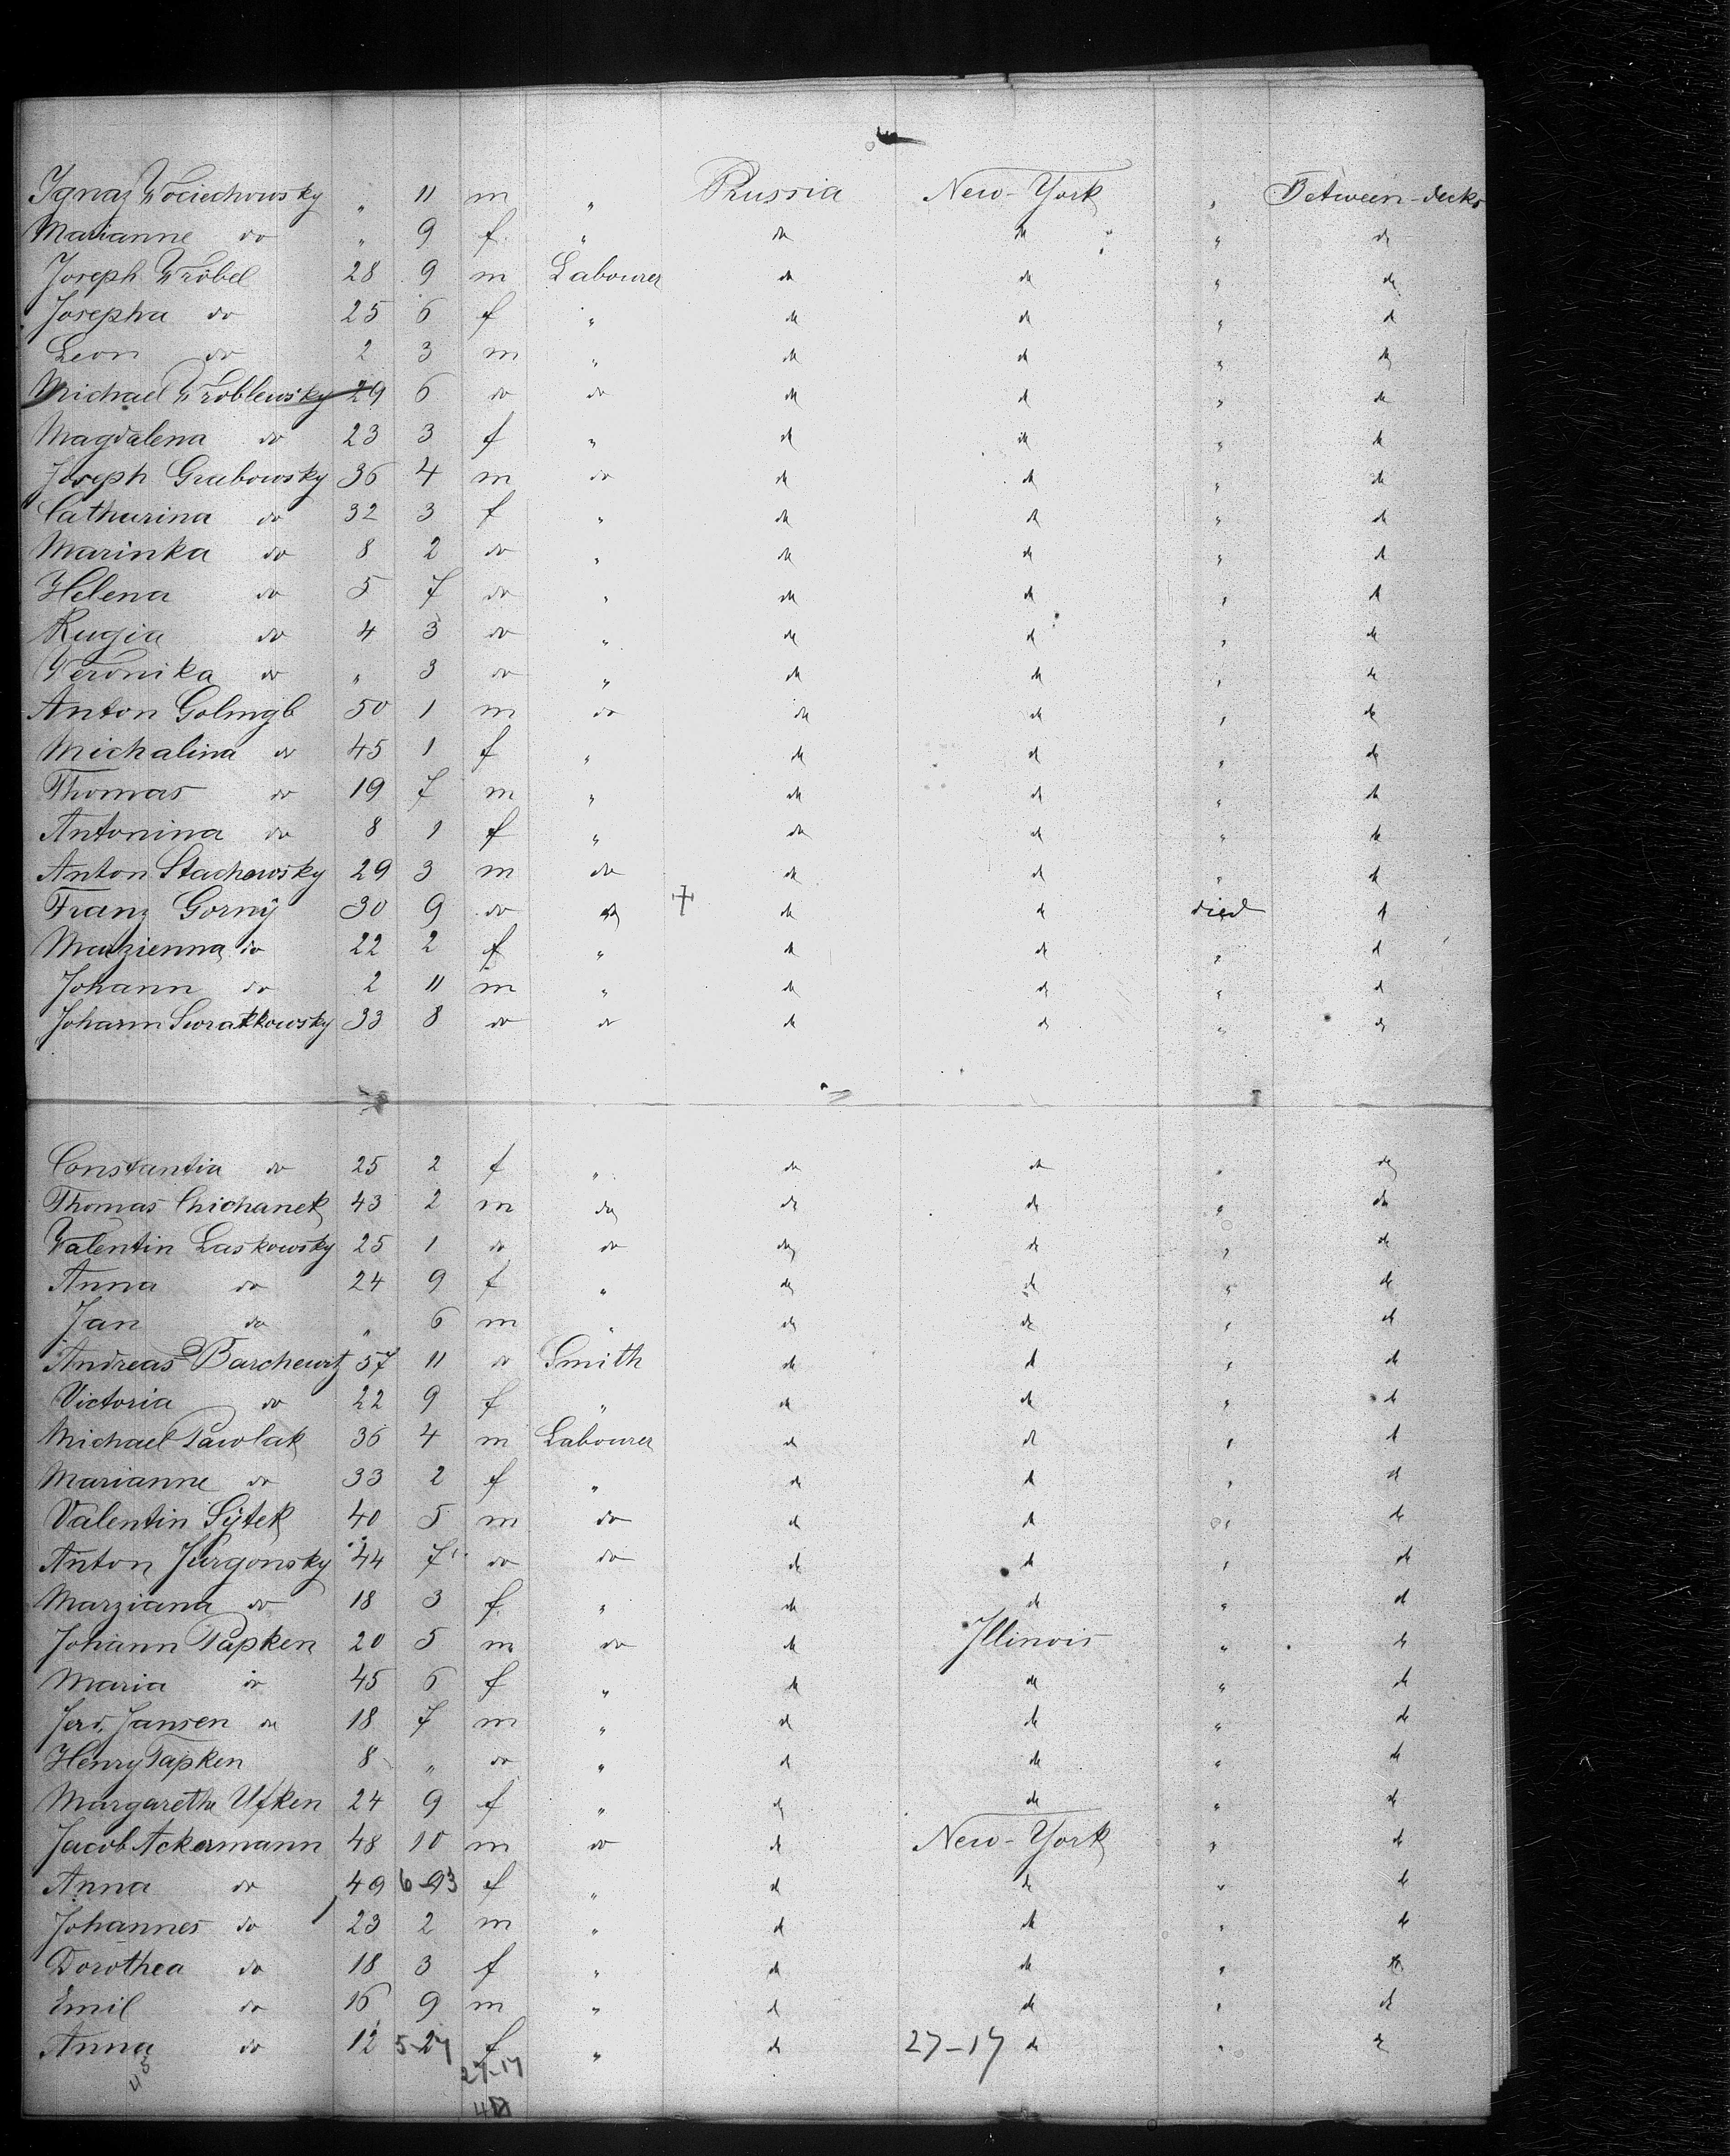 Ignaz Wociechowsky " 11 m " Russia New-York " Between-decks
Marianne do " 9 f " do do " do
Joseph Wröbel 28 9 m Labourer do do " do
Josepha do 25 6 f " do do " do
Leon do 2 3 m " do do " do
Michael Wröblewsky 29 6 do do do do " do
Magdalena do 23 3 f " do do " do
Joseph Grabowsky 36 4 m do do do " do
Catharina do 32 3 f " do do " do
Marinka do 8 2 do " do do " do
Helena do 5 7 do " do do " do
Rugia do 4 3 do " do do " do
Veronika do " 3 do " do do " do
Anton 50 1 m do do do " do
Michalina do 45 1 f " do do " do
Thomas do 19 7 m " do do " do
Antonina do 8 1 f " do do " do
Anton Stachowsky 29 3 m do do do " do
Franz Gornÿ 30 9 do do + do do died do
Marzienna do 22 2 f " do do " do
Johann do 2 11 m " do do " do
Johann Swratkowsky 33 8 do do do do " do
Constantia do 25 2 f " do do " do
Thomas Chichanek 43 2 m do do do " do
Valentin Laskowsky 25 1 do do do do " do
Anna do 24 9 f " do do " do
Jan do " 6 m " do do " do
Andreas Barchewitz 57 11 do Smith do do " do
Victoria do 22 9 f " do do " do
Michael Pawlak 36 4 m Labourer do do " do
Marianne do 33 2 f " do do " do
Valentin Sÿtek 40 5 m do do do " do
Anton Jurgonsky 44 7 do do do do " do
Marziana do 18 3 f " do do " do
Johann Tapken 20 5 m do do Illinois " do
Maria do 45 6 f " do do " do
Ferd. Jansen do 18 7 m " do do " do
Henry Tapken 8 " do " do do " do
Margarethe Ufken 24 9 f " do do " do
Jacob Ackermann 48 10 m do do New-York " do
Anna do 49 6-93 f " do do " do
Johannes do 23 2 m " do do " do
Dorothea do 18 3 f " do do " do
Emil do 16 9 m " do do " do
Anna do 12 5-27 f " do 27-17 do " do
27-17